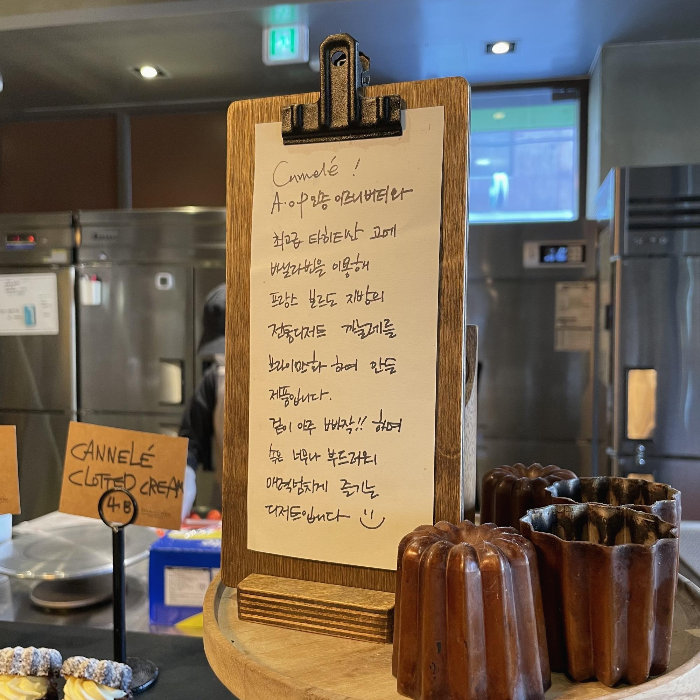 Cannelé !
A.op 인증 이즈니버터와
최고급 타히티산 고메
바닐라빈을 이용해
프랑스 보르도 지방의
전통디저트 까눌레를
브라이만화 하여 만든
제품입니다.
겉이 아주 빠작!! 하며
속은 너무나 부드러워
매력넘치게 즐기는
디저트입니다
CANNELÉ
CLOTTED CREAM
4.8